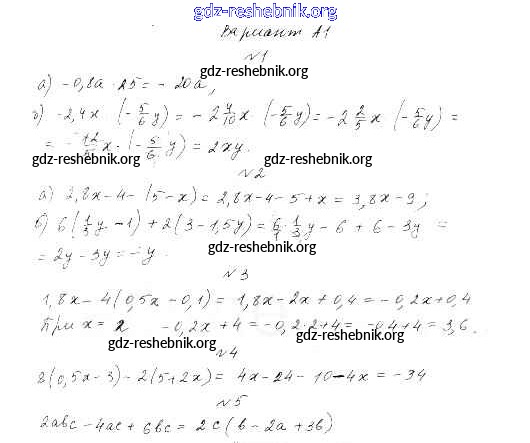 gdz-reshebnik.org
Вариант А1
№1
gdz-reshebnik.org
а) -0,8a · 25 = -20a,
б) -2,4x · (-5/6 y) = -2 4/10 x · (-5/6 y) = -2 2/5 x · (-5/6 y) =
= -12/5 x · (-5/6 y) = 2xy.
gdz-reshebnik.org gdz-reshebnik.org
№2
а) 2,8x-4-(5-x) = 2,8x-4-5+x = 3,8x-9;
б) 6(1/3 y - 1) + 2(3-1,5y) = 6/1 · 1/3 y - 6 + 6 - 3y =
= 2y-3y = -y.
gdz-reshebnik.org
№3
1,8x-4(0,5x-0,1) = 1,8x-2x+0,4 = -0,2x+0,4
При x = 2 -0,2x+4 = -0,2·2+4 = -0,4+4 = 3,6.
gdz-reshebnik.org gdz-reshebnik.org
№4
2(0,5x-3)-2(5+2x) = 4x-24-10-4x = -34
№5
2abc-4ac+6bc = 2c(b-2a+3b)